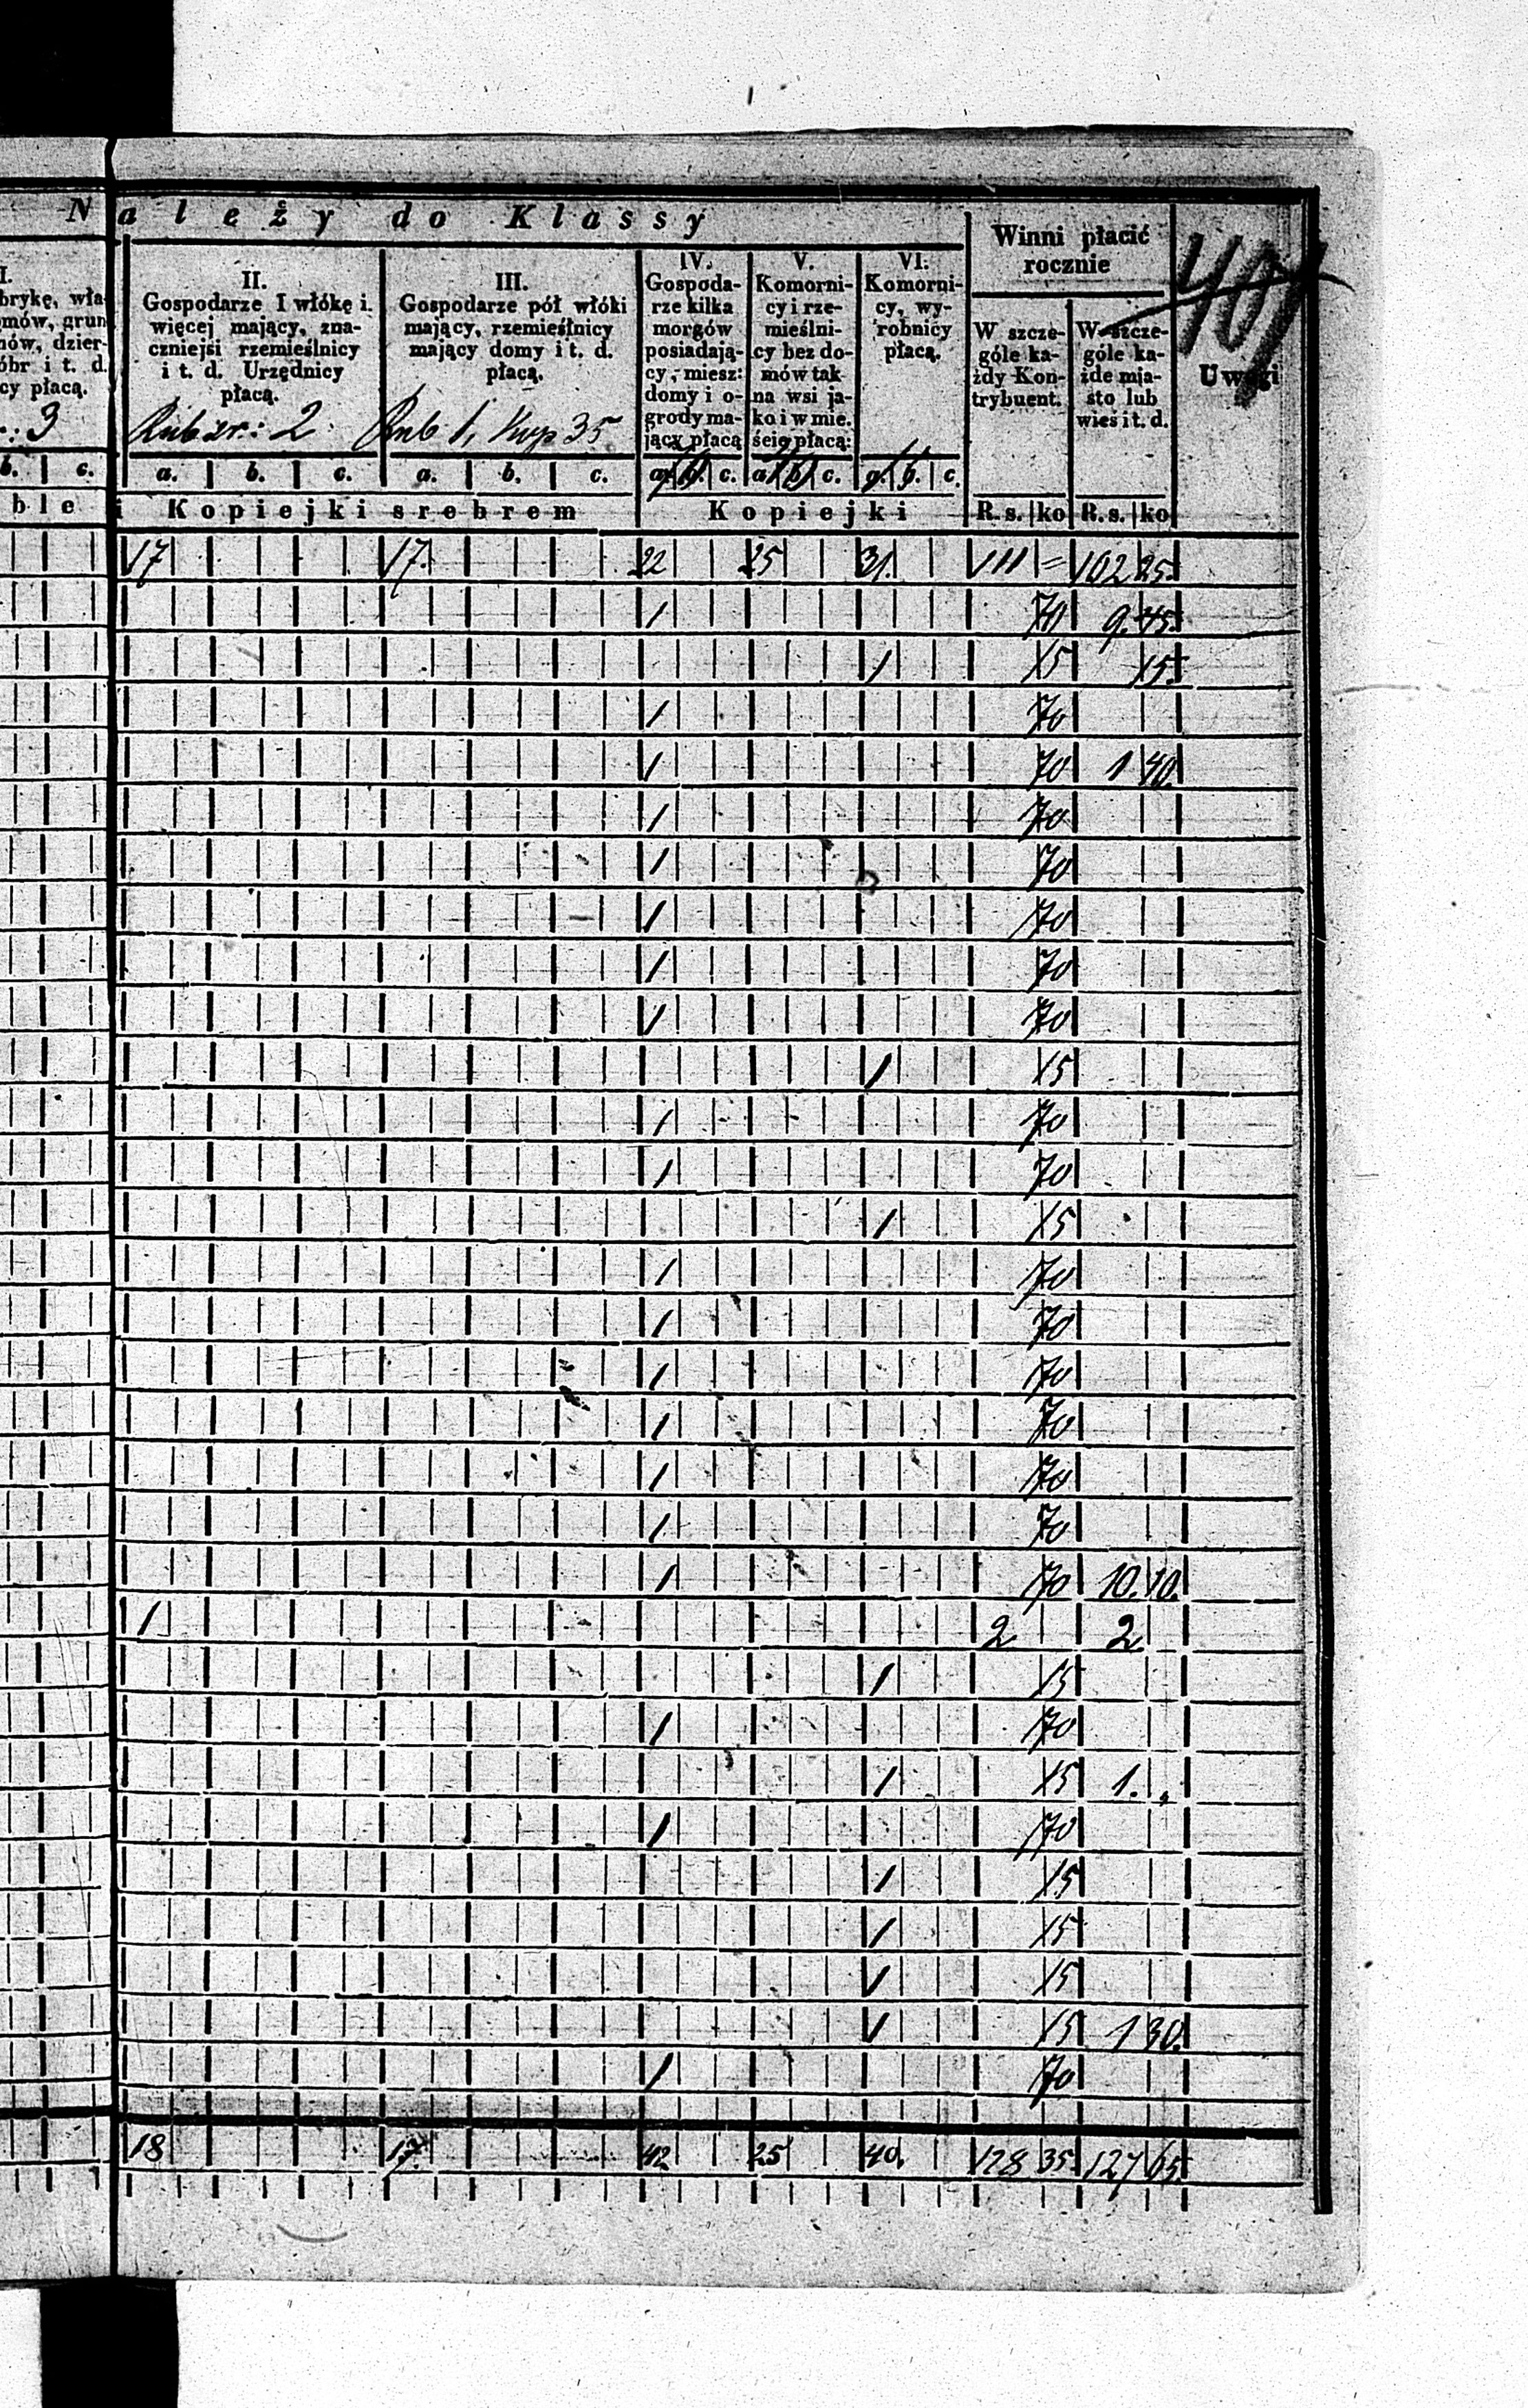 N a l e ż y d o K l a s s y
Winni płacić rocznie
401
I.
brykę, wła-
omów, grun
nów, dzier-
óbr i t. d.
cy płacą.
: 3
II.
Gospodarze I włókę i
więcej mający, zna-
czniejśi rzemieślnicy
i t. d. Urzędnicy
płacą.
Rub sr.: 2
III.
Gospodarze pół włóki
mający, rzemieślnicy
mający domy i t. d.
płacą.
Rub 1, Kop 35
IV.
Gospoda-
rze kilka
morgów
posiadają-
cy, miesz:
domy i o-
grody ma-
jący płacą
V.
Komorni-
cy i rze-
mieślni-
cy bez do-
mów tak
na wsi ja-
ko i w mie.
ście płacą:
VI.
Komorni-
cy, wy-
robnicy
płacą.
W szcze-
góle ka-
żdy Kon-
trybuent.
W szcze-
góle ka-
żde mia-
sto lub
wieś i t. d.
Uwagi
b. c. a. b. c. a. b. c. a. b. c. a. b. c. a. b. c.
ble i K o p i e j k i s r e b r e m K o p i e j k i R. s. ko R. s. ko
17 17. 22 25 31. 111 = 102 25.
1 70 9. 45.
1 15 15.
1 70
1 70 1 40.
1 70
1 70
1 70
1 70
1 70
1 15
1 70
1 70
1 15
1 70
1 70
1 70
1 70
1 70
1 70
1 70 10. 10.
1 2 2
1 15
1 70
1 15 1. „
1 70
1 15
1 15
1 15
1 15 1 30.
1 70
18 17. 42 25 40. 128 35 127 65